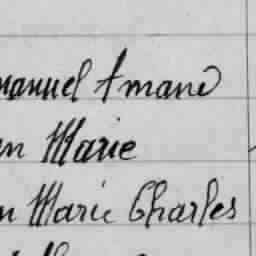 manuel Amand
n Marie
n Marie Charles